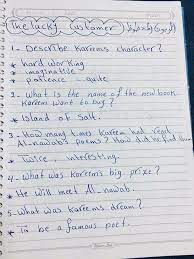 The lucky Customer
1- Describe Kareem's character?
* hard working
imaginative
patience - quite
2- What is the name of the new book
Kareem want to buy?
* Island of Salt.
3- How many times Karem had read
Al-nawab's poems? How did he find them
* Twice, interesting.
4- What was Kareems big prize?
* He will meet Al-nawab.
5- What was Kareems dream?
* To be a famous poet.